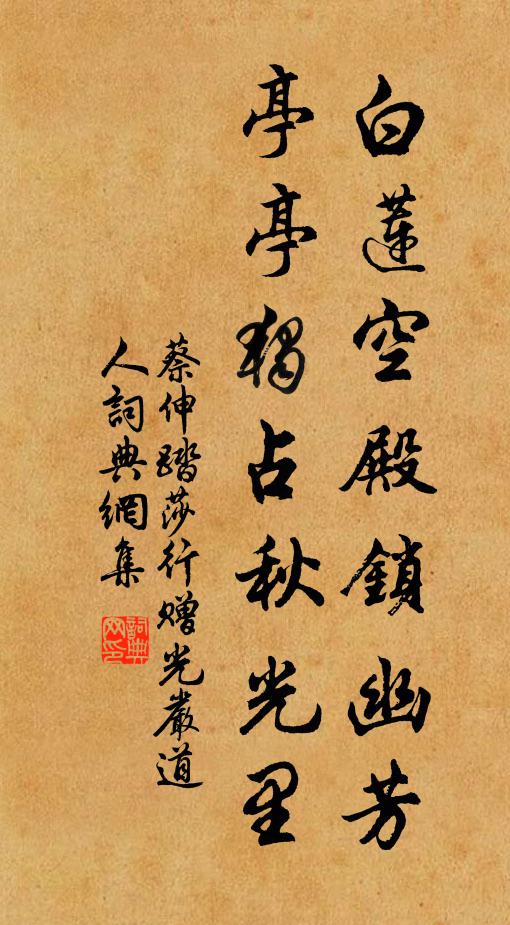 白蓮空殿鎖幽芳
亭亭獨占秋光里
蔡伸踏莎行贈光嚴道
人詞典網集
詞典
网印